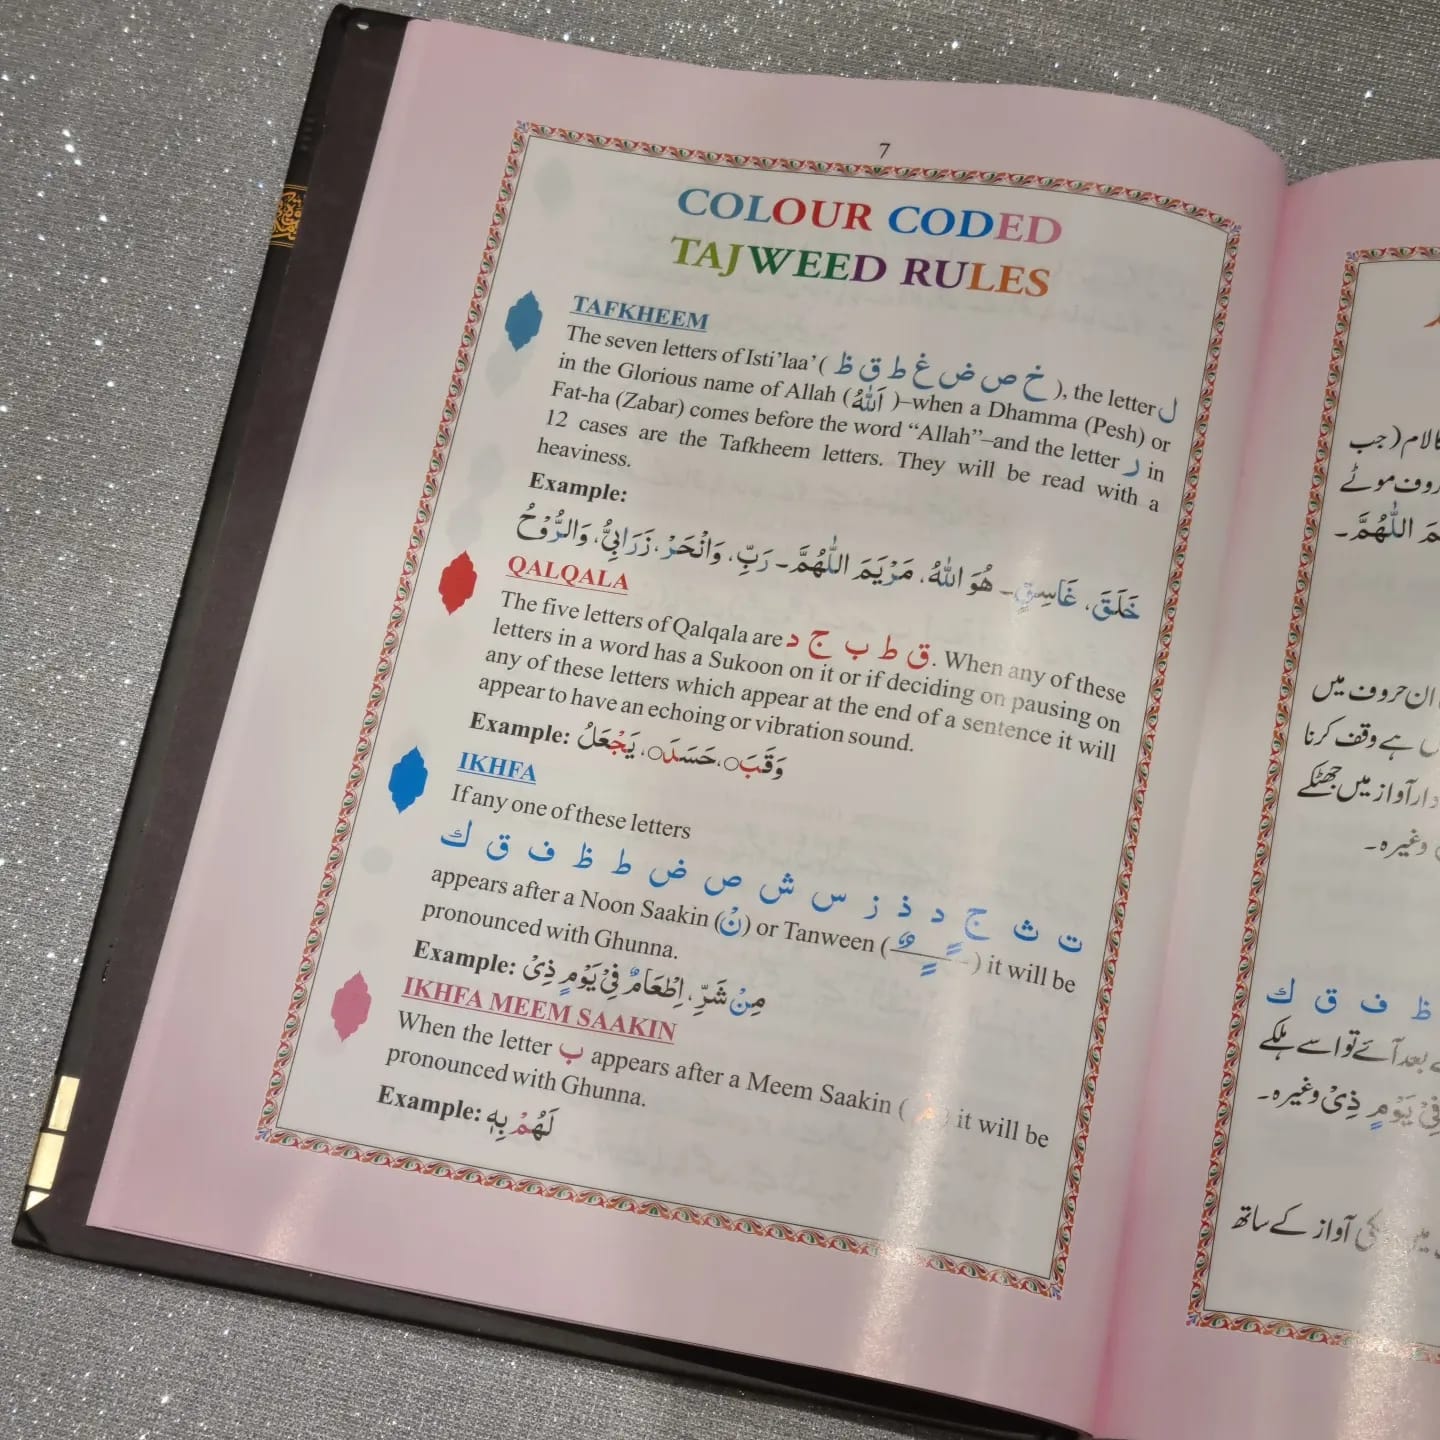 7
COLOUR CODED
TAJWEED RULES
TAFKHEEM
The seven letters of Isti’laa’ ( خ ص ض غ ط ق ظ ), the letter ل
in the Glorious name of Allah (اَللّٰهُ)–when a Dhamma (Pesh) or
Fat-ha (Zabar) comes before the word “Allah”–and the letter ر in
12 cases are the Tafkheem letters. They will be read with a
heaviness.
Example:
خَلَقَ، غَاسِقٍ۔ هُوَ اللّٰهُ، مَرْيَمَ اللّٰهُمَّ۔ رَبِّ، وَانْحَرْ، زَرَابِيُّ، وَالرُّوْحُ
QALQALA
The five letters of Qalqala are ق ط ب ج د. When any of these
letters in a word has a Sukoon on it or if deciding on pausing on
any of these letters which appear at the end of a sentence it will
appear to have an echoing or vibration sound.
Example: وَقَبَ○، حَسَدَ○، يَجْعَلُ
IKHFA
If any one of these letters
ت ث ج د ذ ز س ش ص ض ط ظ ف ق ك
appears after a Noon Saakin (نْ) or Tanween ( ــٍــٌ ) it will be
pronounced with Ghunna.
Example: مِنْ شَرِّ، اِطْعَامٌ فِيْ يَوْمٍ ذِيْ
IKHFA MEEM SAAKIN
When the letter ب appears after a Meem Saakin ( ) it will be
pronounced with Ghunna.
Example: لَهُمْ بِهٖ
کالام (جب
روف موٹے
مَ اللّٰهُمَّ۔
ان حروف میں
ہے وقف کرنا
دار آواز میں جھٹکے
وغیرہ۔
ظ ف ق ك
بعد آئے تو اسے ہلکے
فِيْ يَوْمٍ ذِيْ وغیرہ۔
آواز کے ساتھ